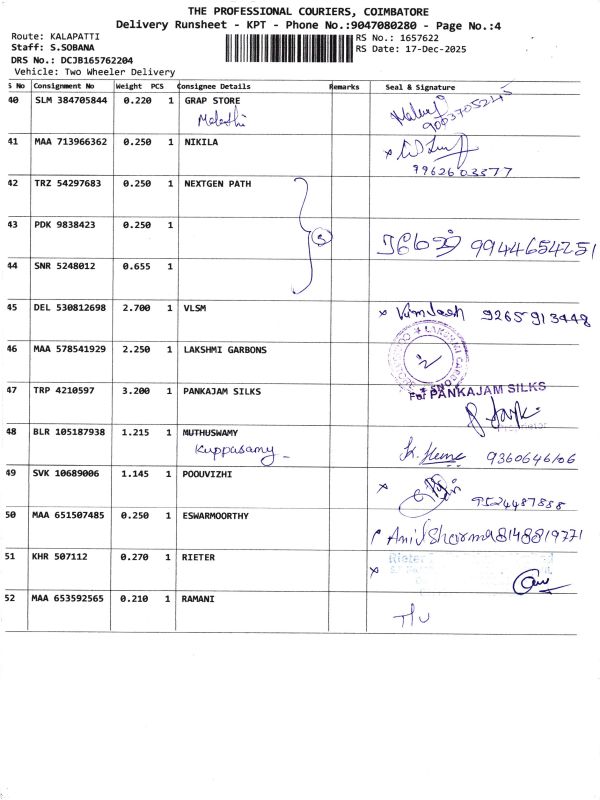 THE PROFESSIONAL COURIERS, COIMBATORE
Delivery Runsheet - KPT - Phone No.:9047080280 - Page No.:4
Route: KALAPATTI
Staff: S.SOBANA
DRS No.: DCJB165762204
Vehicle: Two Wheeler Delivery
RS No.: 1657622
RS Date: 17-Dec-2025
S No Consignment No Weight PCS Consignee Details Remarks Seal & Signature
40 SLM 384705844 0.220 1 GRAP STORE
9003705245
41 MAA 713966362 0.250 1 NIKILA
9962603577
42 TRZ 54297683 0.250 1 NEXTGEN PATH
43 PDK 9838423 0.250 1
3
9944654251
44 SNR 5248012 0.655 1
45 DEL 530812698 2.700 1 VLSM
9265913448
46 MAA 578541929 2.250 1 LAKSHMI GARBONS
47 TRP 4210597 3.200 1 PANKAJAM SILKS
For PANKAJAM SILKS
48 BLR 105187938 1.215 1 MUTHUSWAMY
Kuppasamy
9360646106
49 SVK 10689006 1.145 1 POOUVIZHI
9524487888
50 MAA 651507485 0.250 1 ESWARMOORTHY
Anil Sharma 8148819771
51 KHR 507112 0.270 1 RIETER
Rieter
52 MAA 653592565 0.210 1 RAMANI